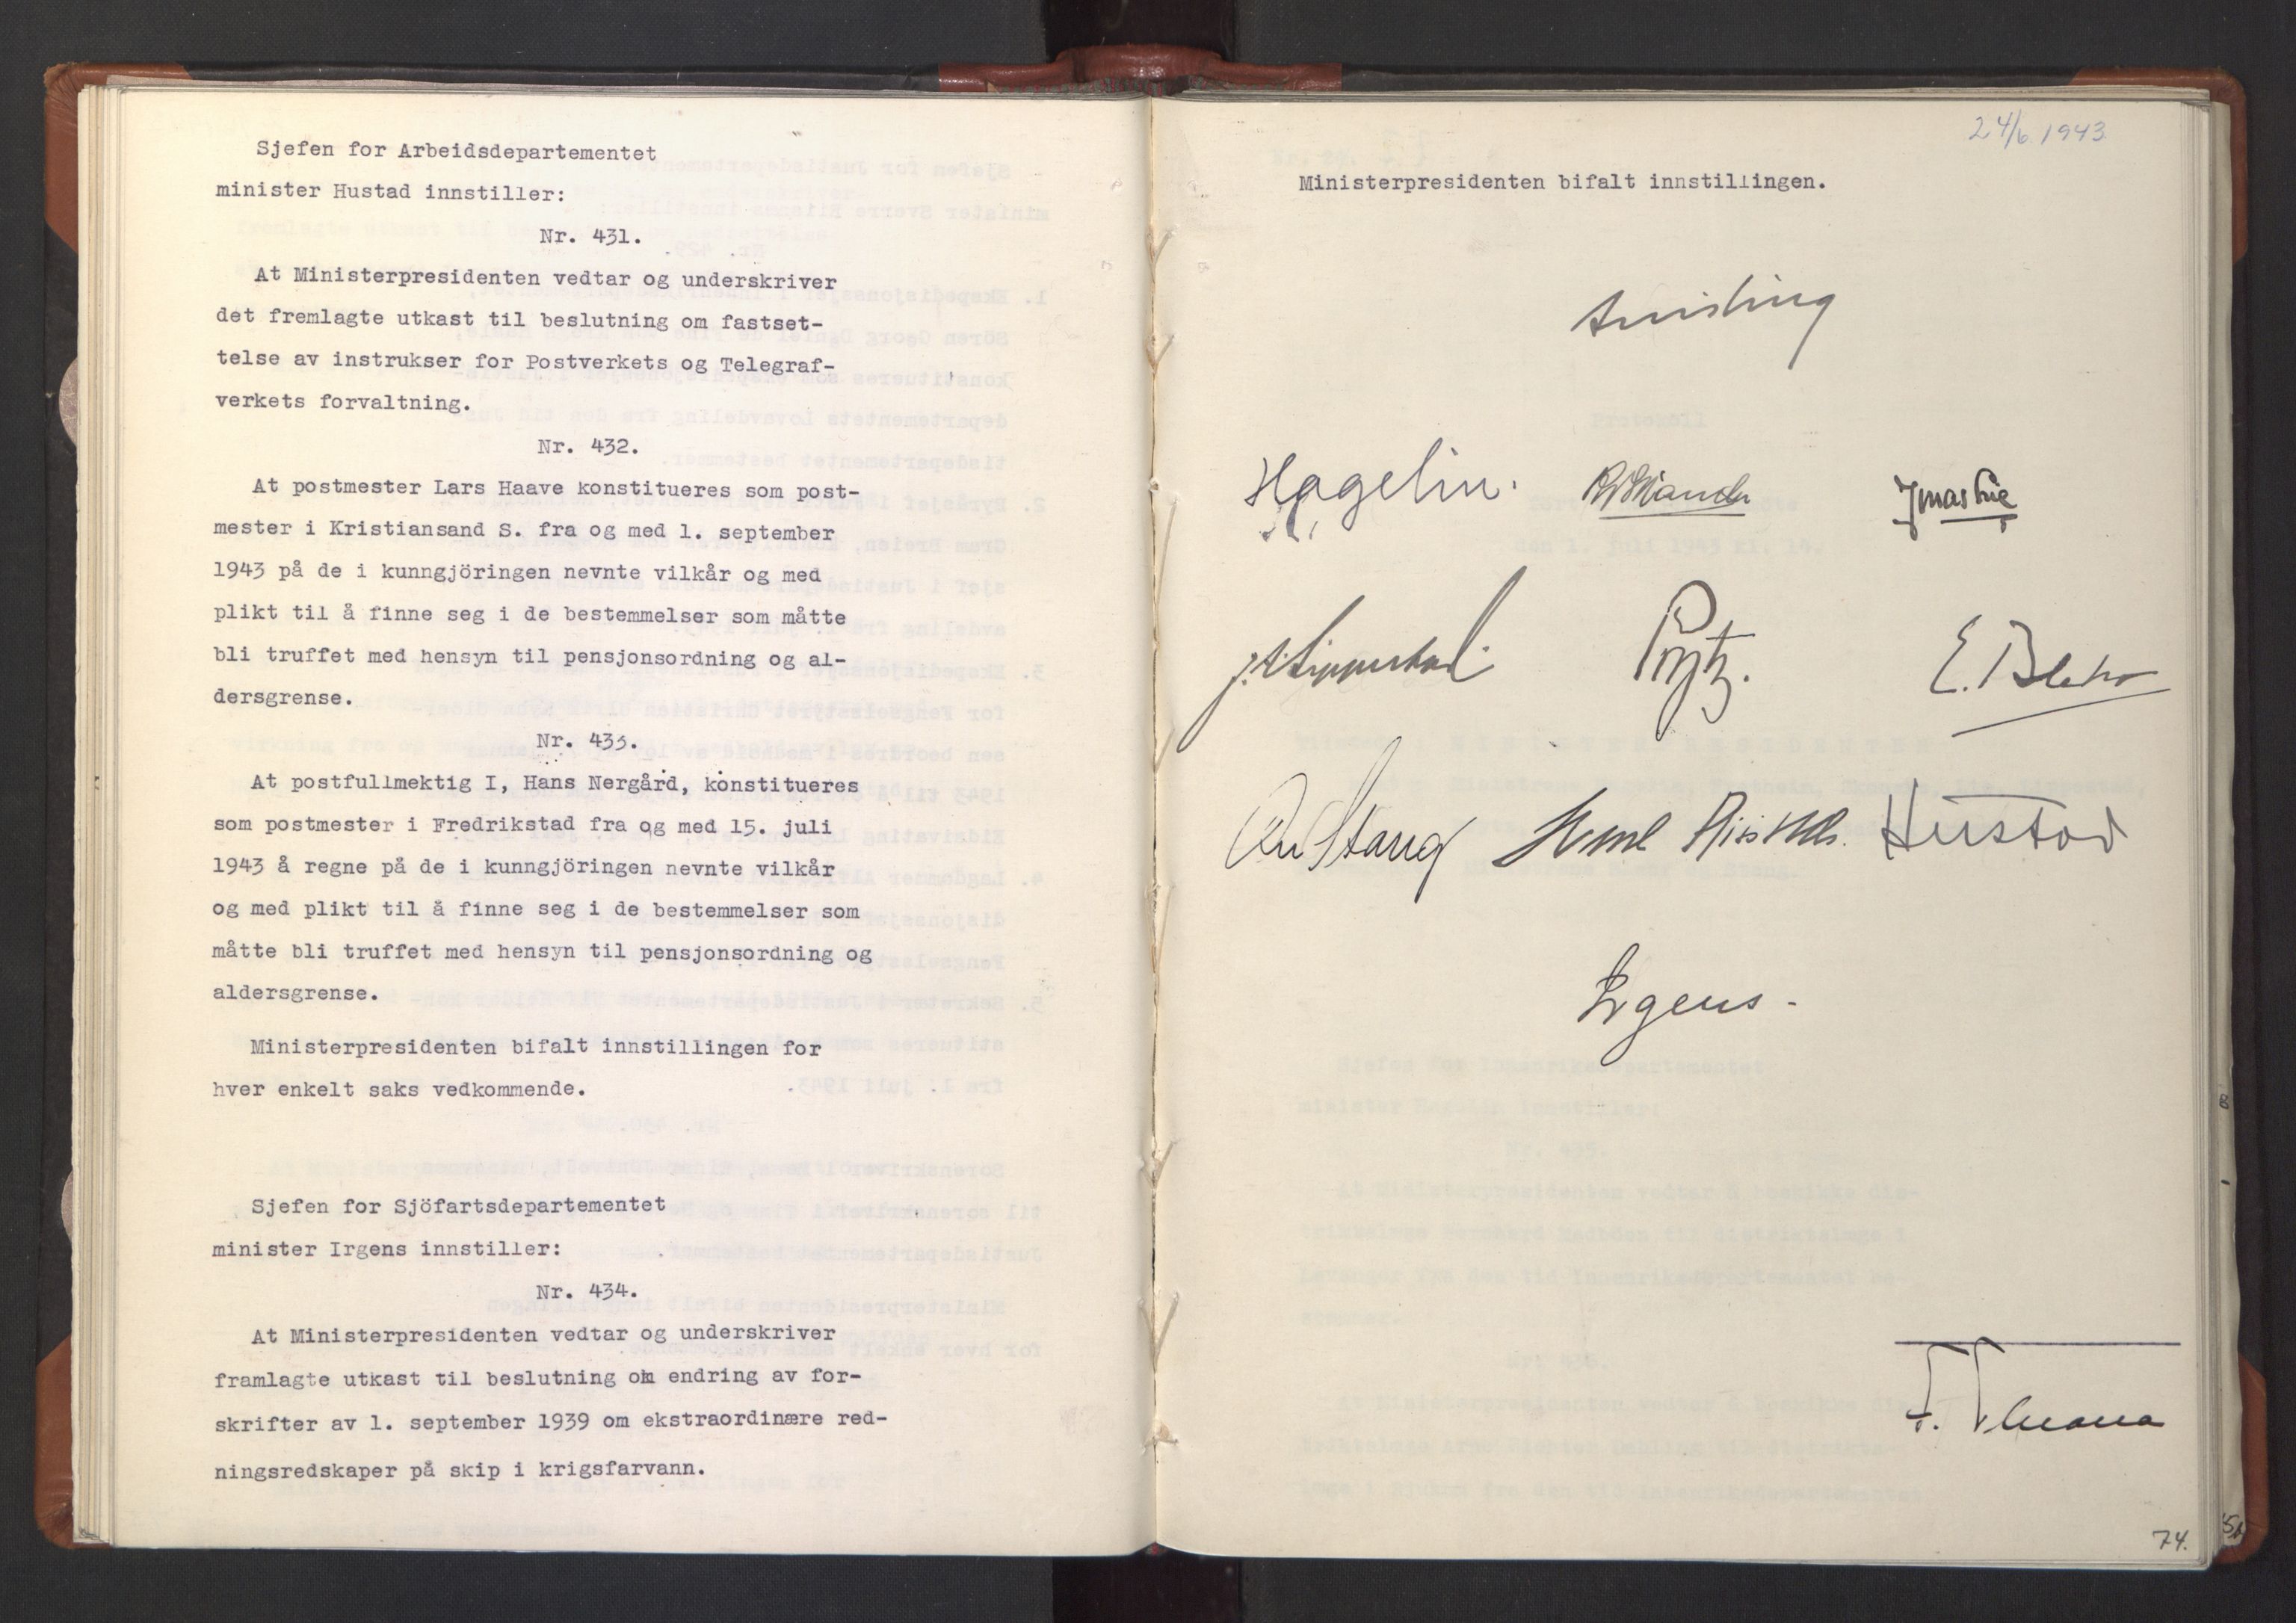 Sjefen for Arbeidsdepartementet
minister Hustad innstiller:
Nr. 431.
At Ministerpresidenten vedtar og underskriver
det fremlagte utkast til beslutning om fastset-
telse av instrukser for Postverkets og Telegraf-
verkets forvaltning.
Nr. 432.
At postmester Lars Haave konstitueres som post-
mester i Kristiansand S. fra og med 1. september
1943 på de i kunngjöringen nevnte vilkår og med
plikt til å finne seg i de bestemmelser som måtte
bli truffet med hensyn til pensjonsordning og al-
dersgrense.
Nr. 433.
At postfullmektig I, Hans Nergård, konstitueres
som postmester i Fredrikstad fra og med 15. juli
1943 å regne på de i kunngjöringen nevnte vilkår
og med plikt til å finne seg i de bestemmelser som
måtte bli truffet med hensyn til pensjonsordning og
aldersgrense.
Ministerpresidenten bifalt innstillingen for
hver enkelt saks vedkommende.
Sjefen for Sjöfartsdepartementet
minister Irgens innstiller:
Nr. 434.
At Ministerpresidenten vedtar og underskriver
framlagte utkast til beslutning om endring av for-
skrifter av 1. september 1939 om ekstraordinære red-
ningsredskaper på skip i krigsfarvann.
24/6 1943
Ministerpresidenten bifalt innstillingen.
Quisling
Hagelin.
Jonas Lie
J. Lippestad.
Prytz.
E. Blehr
Stang
Hustad
Irgens-
74.